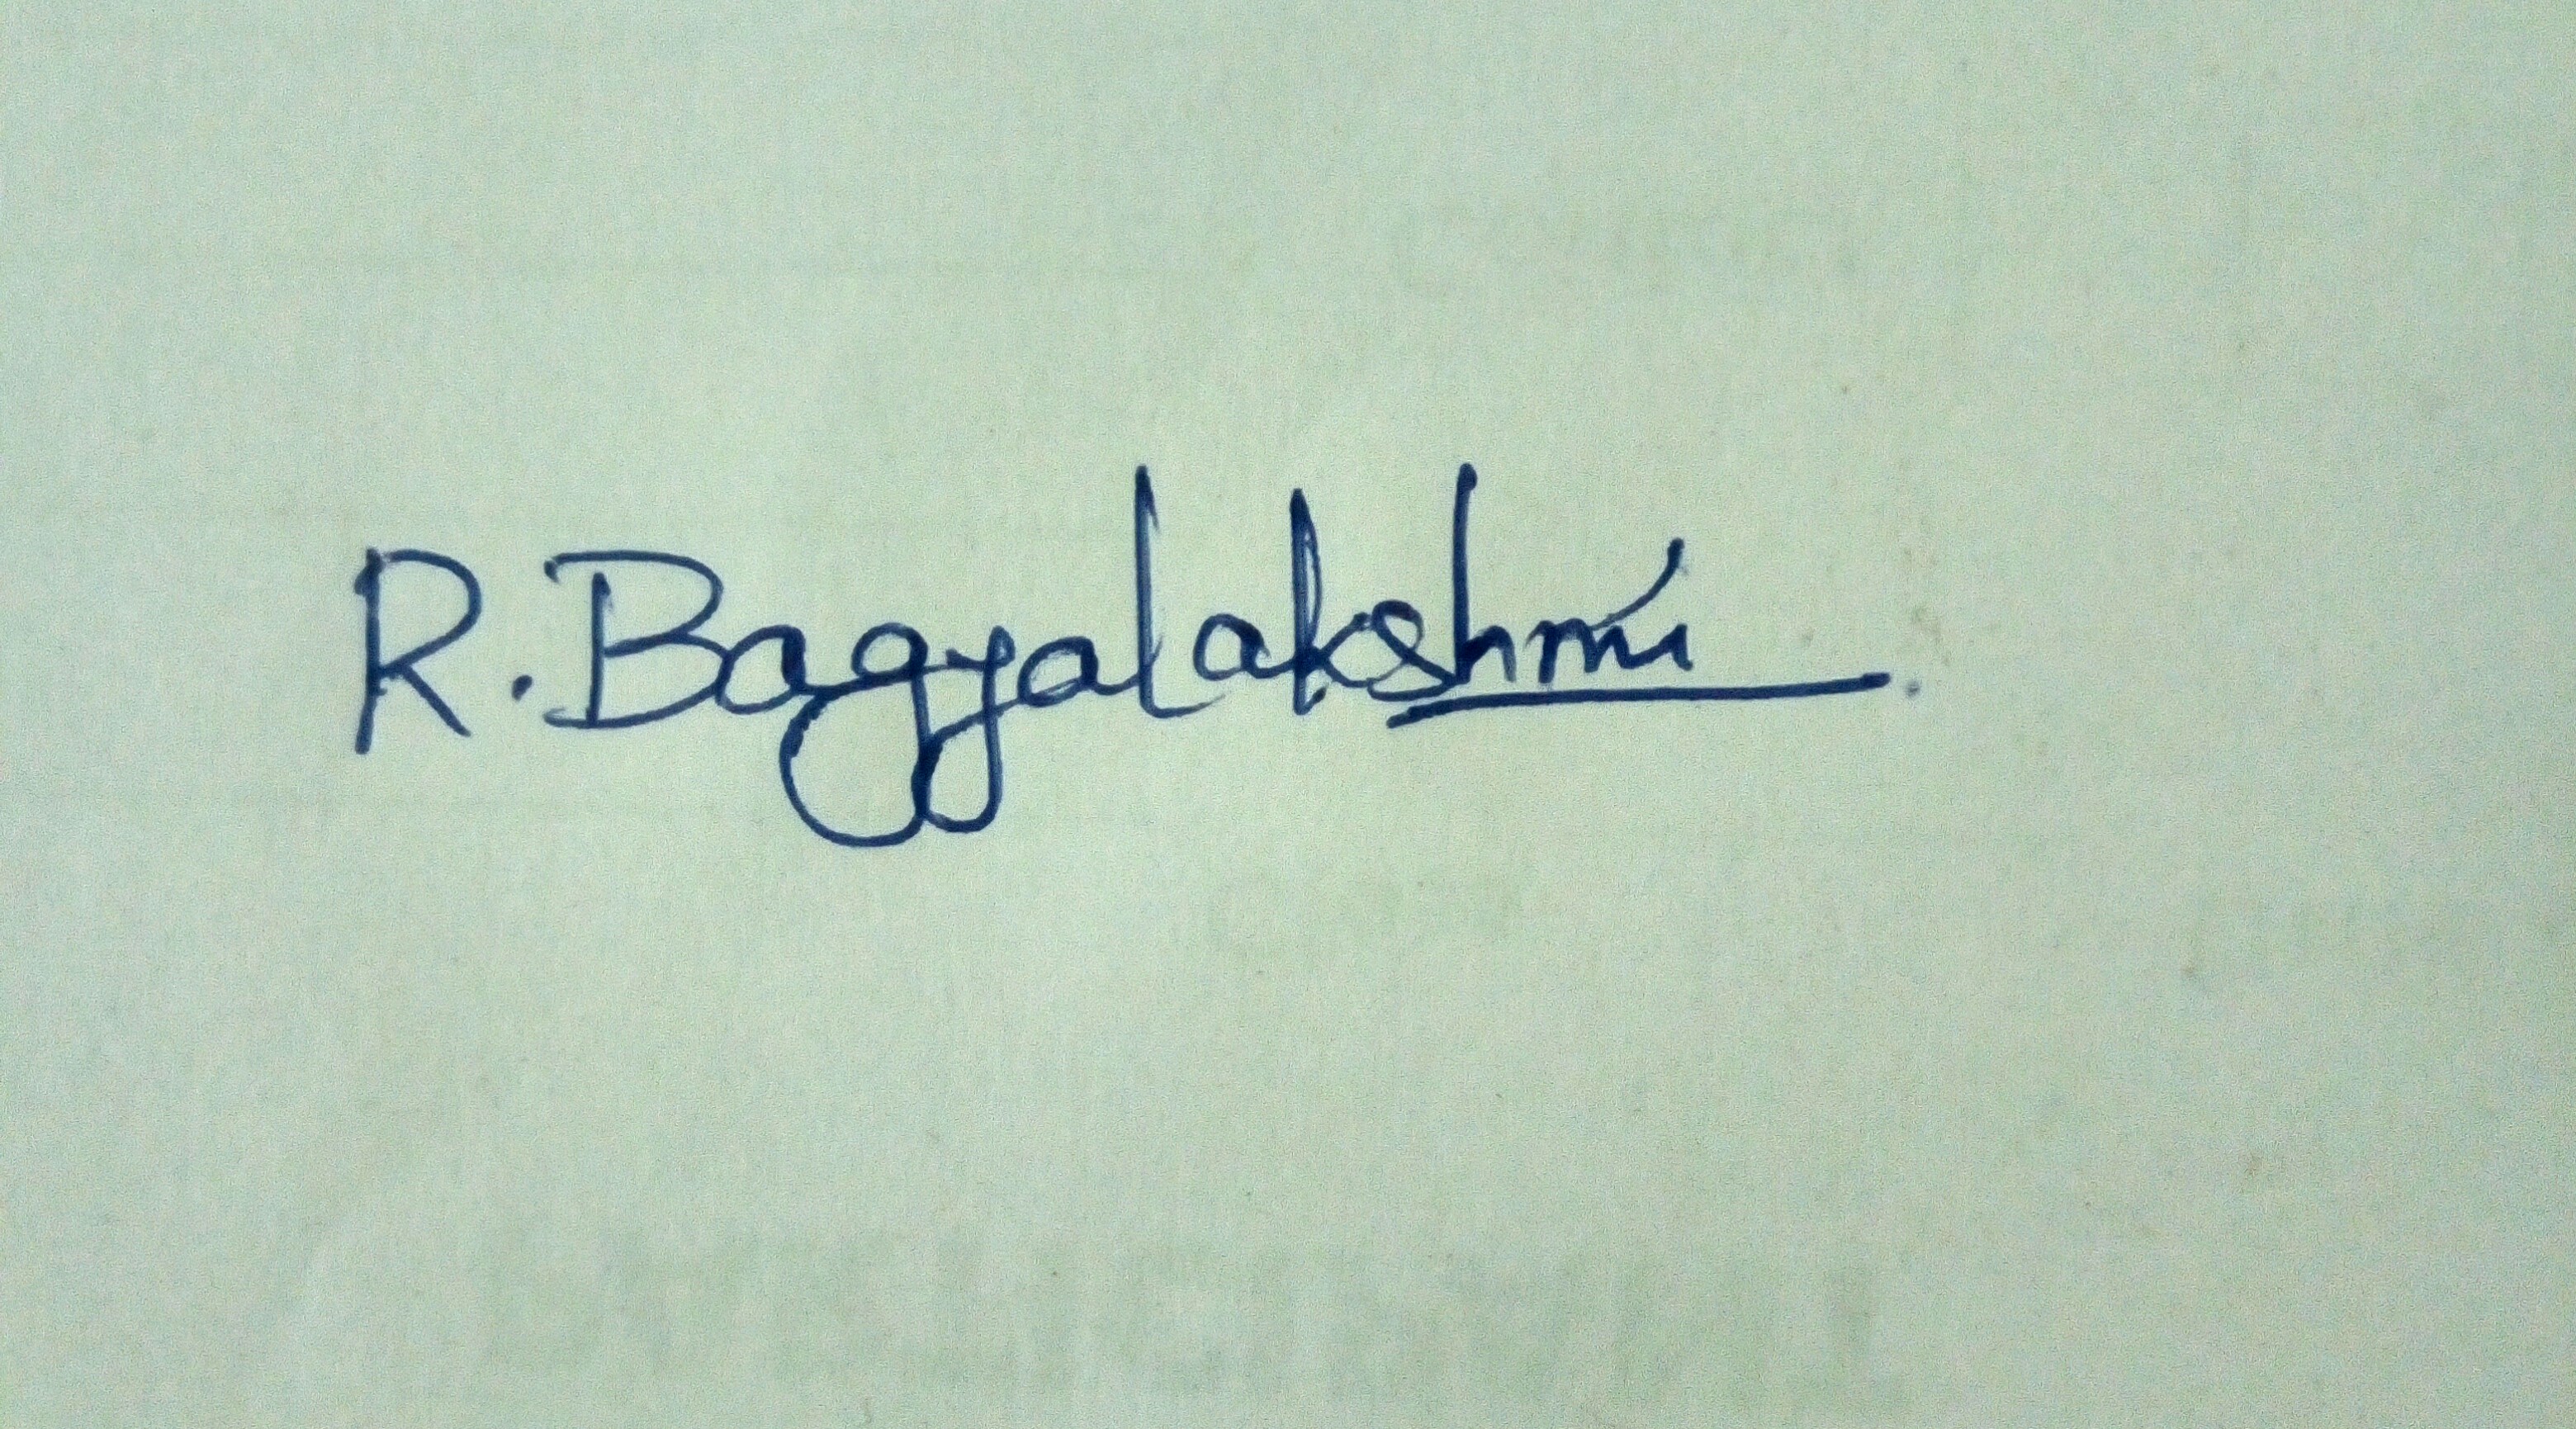 R. Bagyalakshmi